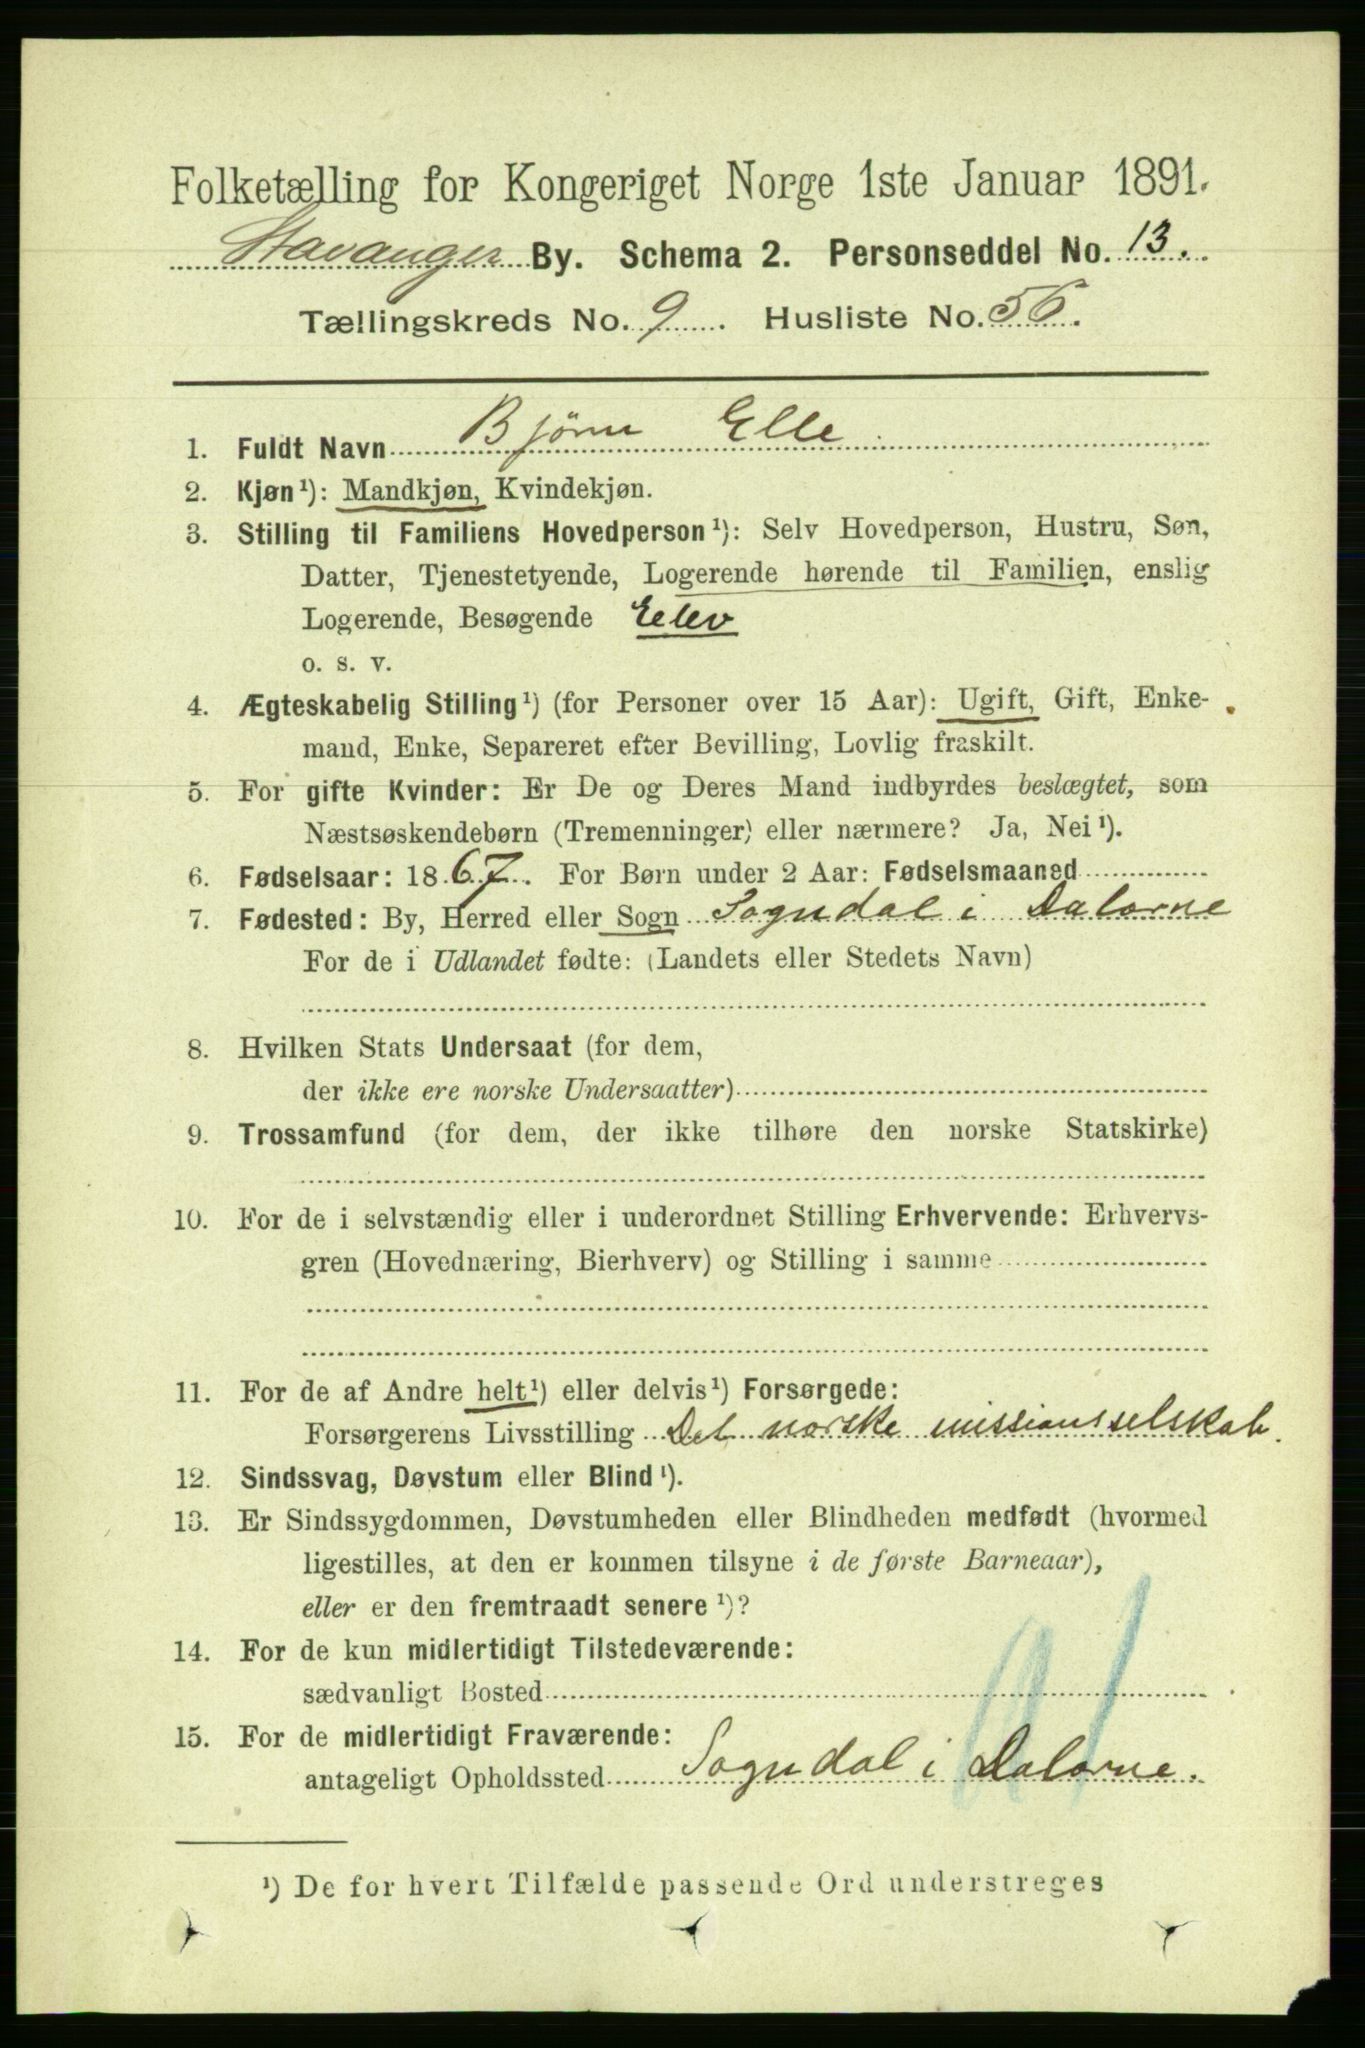 Folketælling for Kongeriget Norge 1ste Januar 1891.
Stavanger By. Schema 2. Personseddel No. 13.
Tællingskreds No. 9. Husliste No. 56.
1. Fuldt Navn Bjørn Elle
2. Kjøn¹): Mandkjøn, Kvindekjøn.
3. Stilling til Familiens Hovedperson¹): Selv Hovedperson, Hustru, Søn,
Datter, Tjenestetyende, Logerende hørende til Familien, enslig
Logerende, Besøgende Elev
o. s. v.
4. Ægteskabelig Stilling¹) (for Personer over 15 Aar): Ugift, Gift, Enke-
mand, Enke, Separeret efter Bevilling, Lovlig fraskilt.
5. For gifte Kvinder: Er De og Deres Mand indbyrdes beslægtet, som
Næstsøskendebørn (Tremenninger) eller nærmere? Ja, Nei¹).
6. Fødselsaar: 1867. For Børn under 2 Aar: Fødselsmaaned
7. Fødested: By, Herred eller Sogn Sogndal i Dalarne
For de i Udlandet fødte: (Landets eller Stedets Navn)
8. Hvilken Stats Undersaat (for dem,
der ikke ere norske Undersaatter)
9. Trossamfund (for dem, der ikke tilhøre den norske Statskirke)
10. For de i selvstændig eller i underordnet Stilling Erhvervende: Erhvervs-
gren (Hovednæring, Bierhverv) og Stilling i samme
11. For de af Andre helt¹) eller delvis¹) Forsørgede:
Forsørgerens Livsstilling Det norske missionsselskab.
12. Sindssvag, Døvstum eller Blind¹).
13. Er Sindssygdommen, Døvstumheden eller Blindheden medfødt (hvormed
ligestilles, at den er kommen tilsyne i de første Barneaar),
eller er den fremtraadt senere¹)?
14. For de kun midlertidigt Tilstedeværende:
sædvanligt Bosted
15. For de midlertidigt Fraværende:
antageligt Opholdssted Sogndal i Dalarne.
¹) De for hvert Tilfælde passende Ord understreges